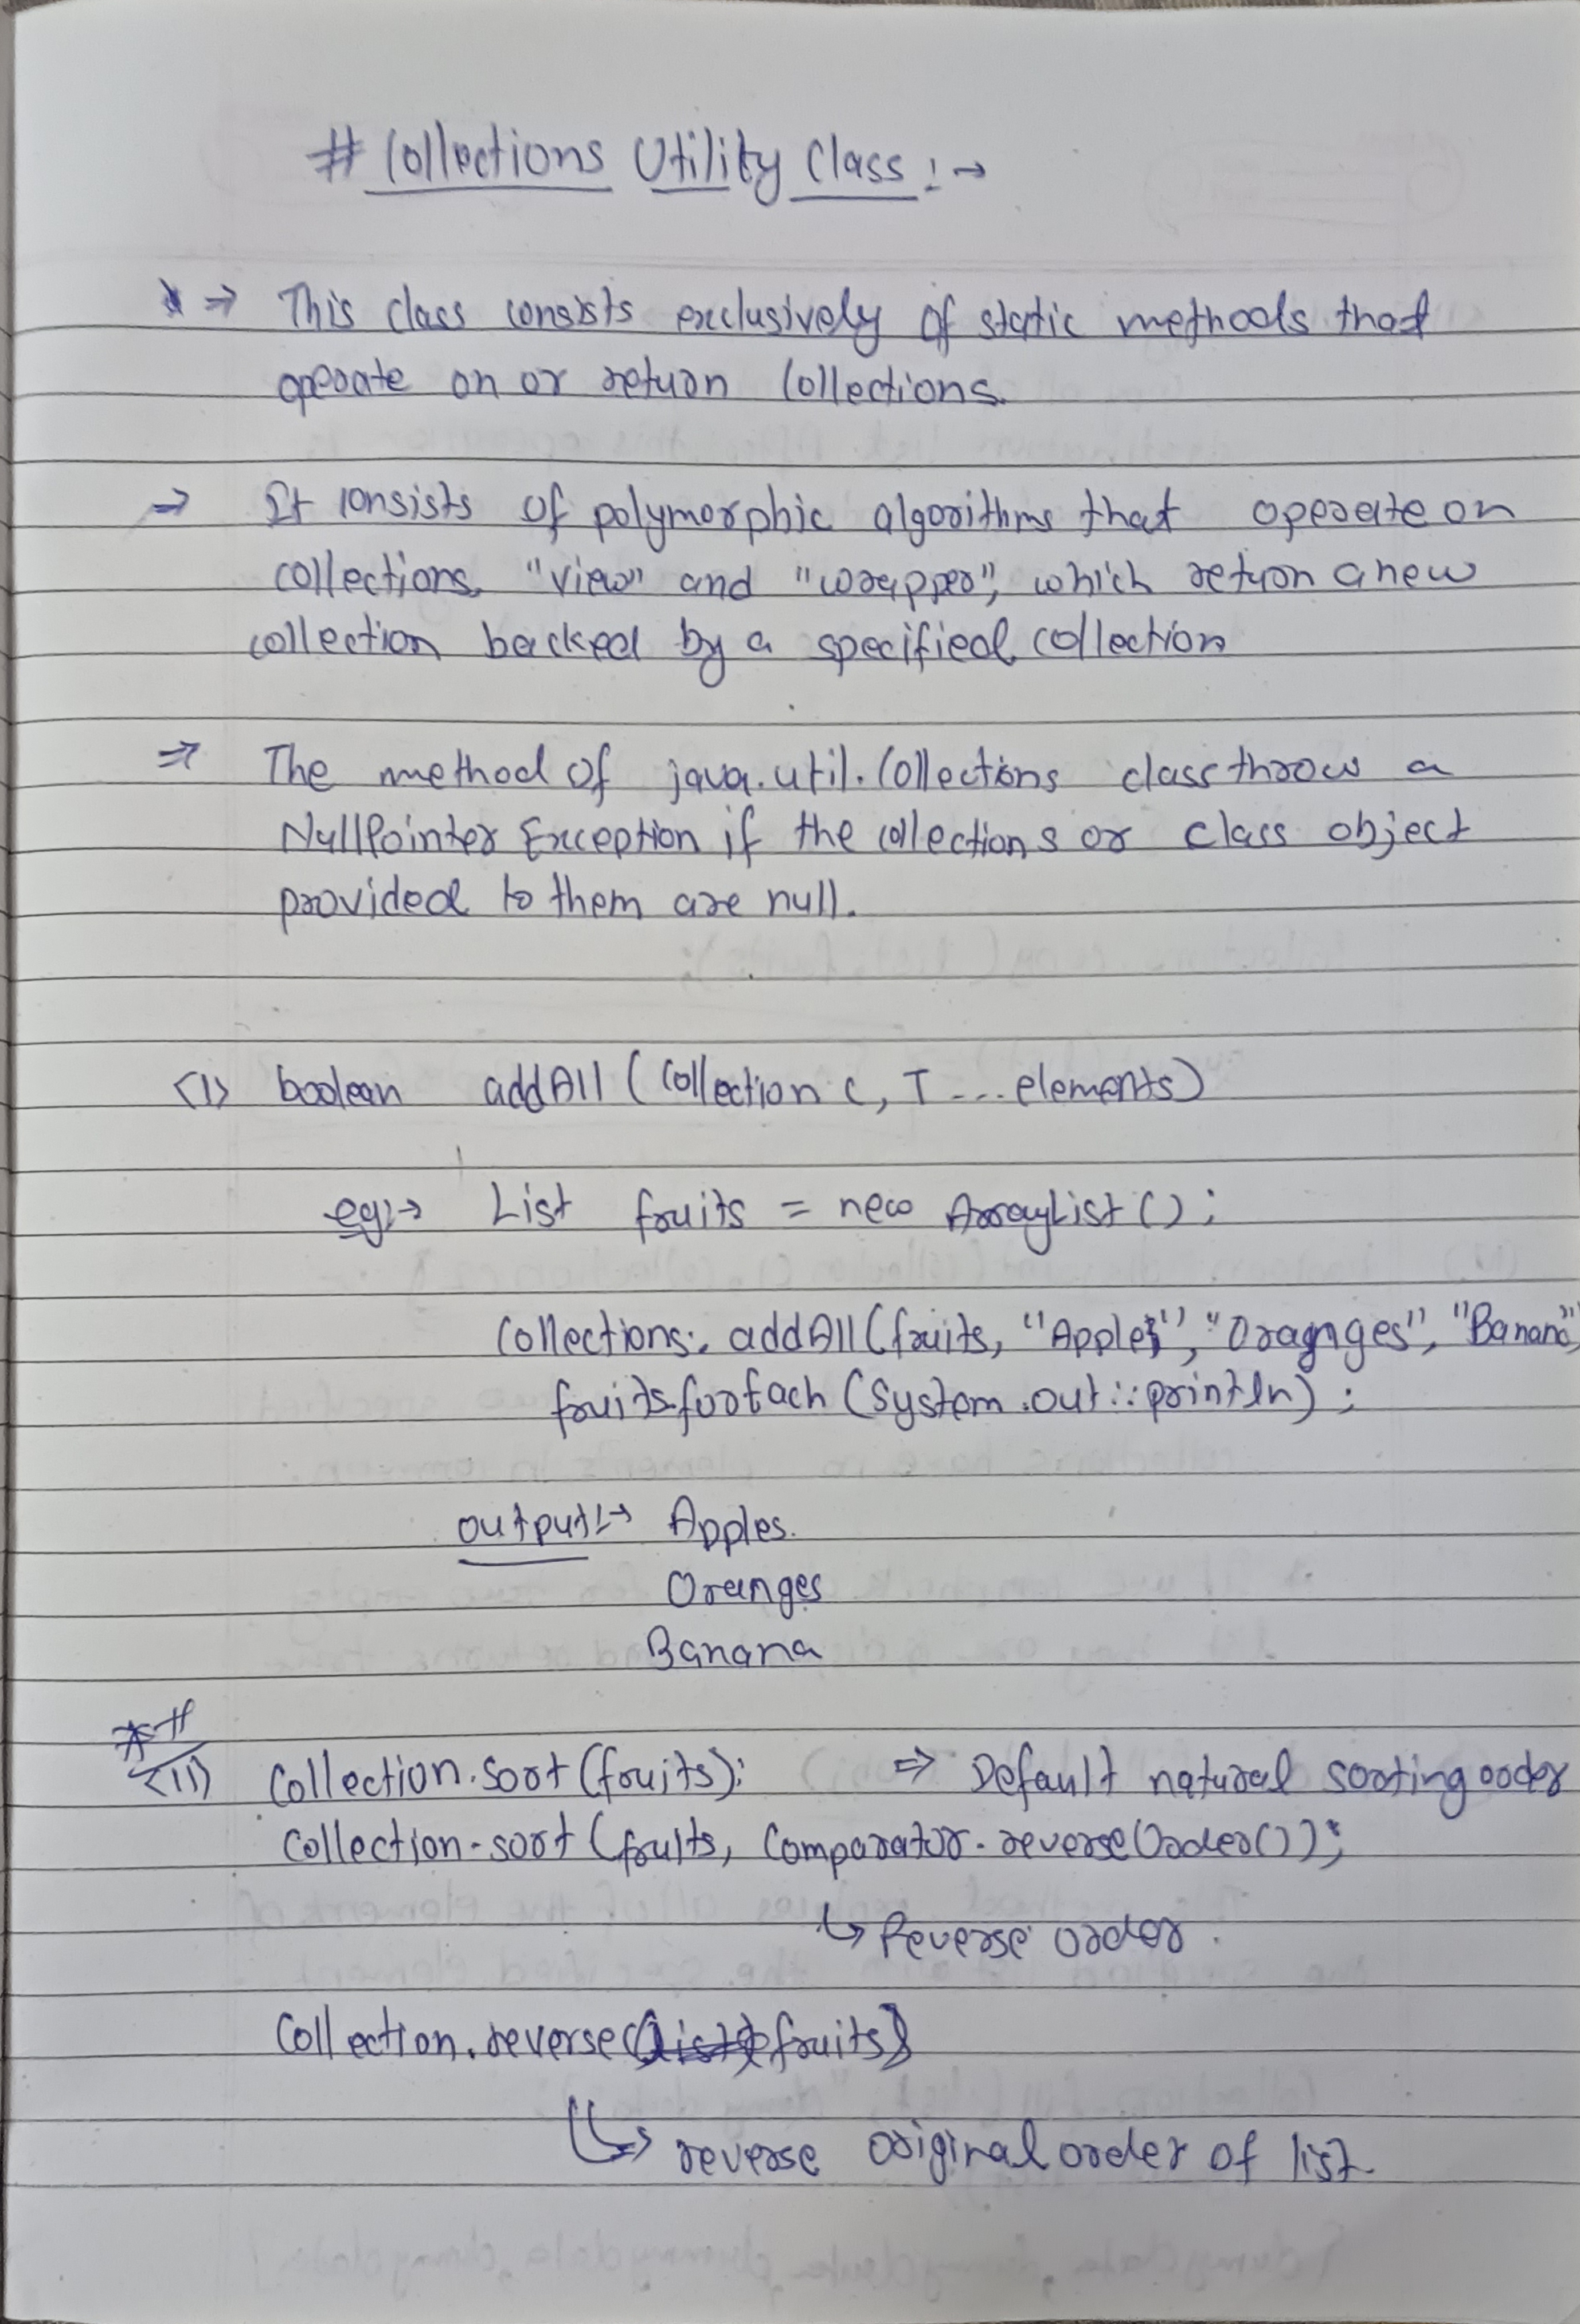 # Collections Utility Class :→
* ⇒ This class consists exclusively of static methods that
operate on or return Collections.
⇒ It consists of polymorphic algorithms that operate on
collections. "view" and "wrapper", which return a new
collection backed by a specified collection
⇒ The method of java.util.Collections class throw a
NullPointer Exception if the collections or class object
provided to them are null.
<1> boolean addAll (Collection c, T ... elements)
eg:→ List fruits = new ArrayList ();
Collections. addAll (fruits, "Apples", "Oragnges", "Banana"
fruits.forEach (System.out::println);
output:→ Apples.
Oranges
Banana
*#
<11> Collection.sort (fruits); ⇒ Default natural sorting order
Collection.sort (fruits, Comparator.reverseOrder());
↳ Reverse order.
Collection.reverse(fruits)
↳ reverse original order of list.